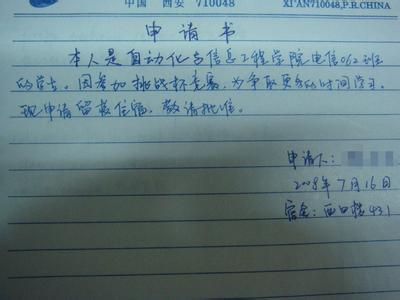 中国 西安 710048
XI'AN710048,P.R.CHINA
申请书
本人是自动化与信息工程学院电信062班
的学生。因参加挑战杯竞赛，为争取更多的时间学习。
现申请留校住宿，敬请批准。
申请人：
2008年7月16日
宿舍：西口楼431